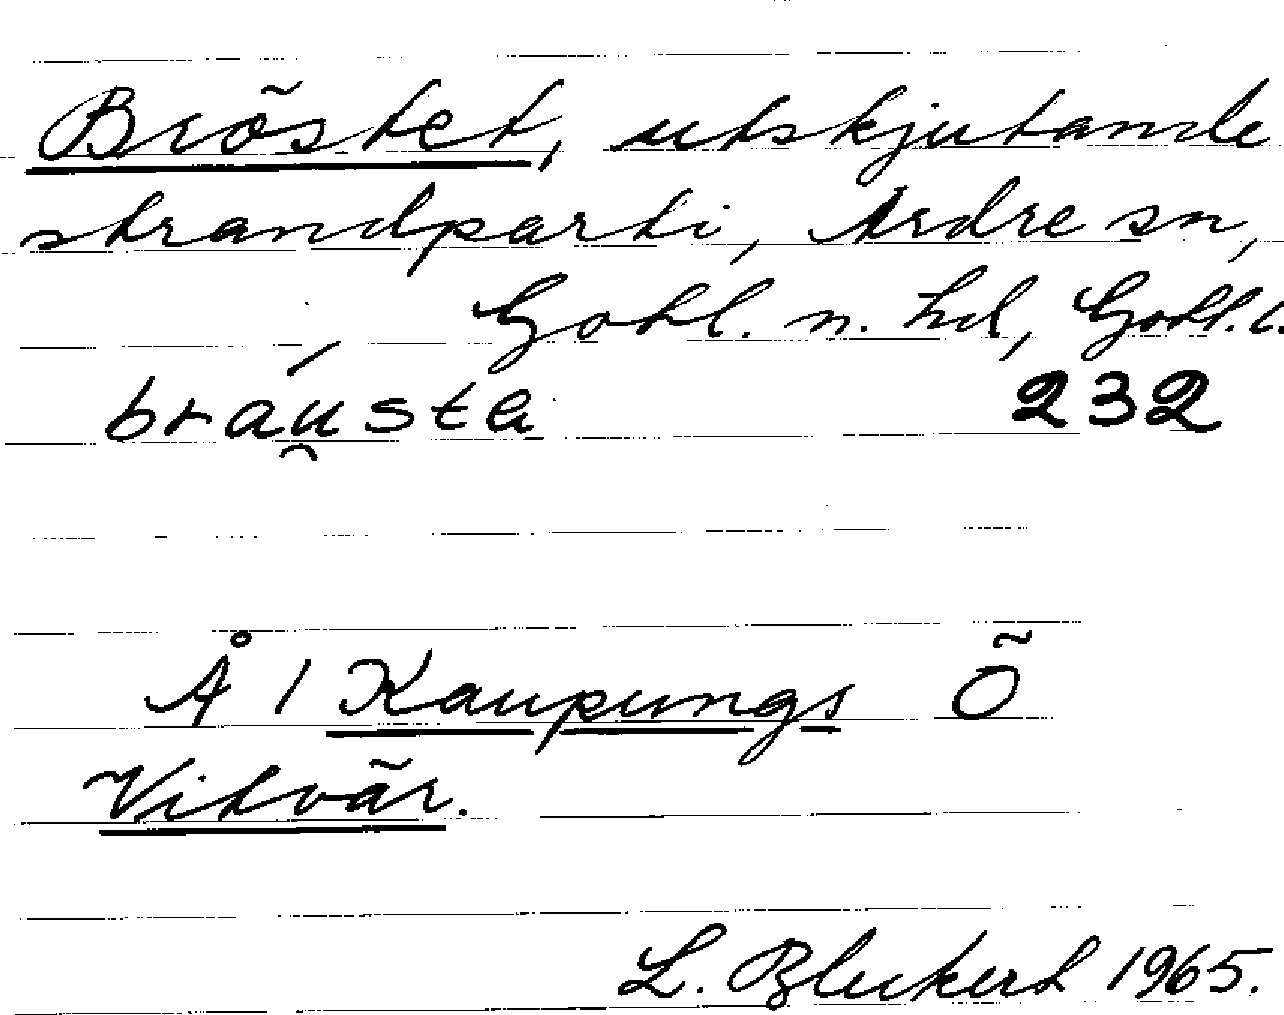 Bröstet, utskjutande
strandparti, Ardre sn,
Gotl. n. hd, Gotl. l.
bráu̯sta 232
Å 1 Kaupungs Ö
Vitvär.
L. Blukert 1965.